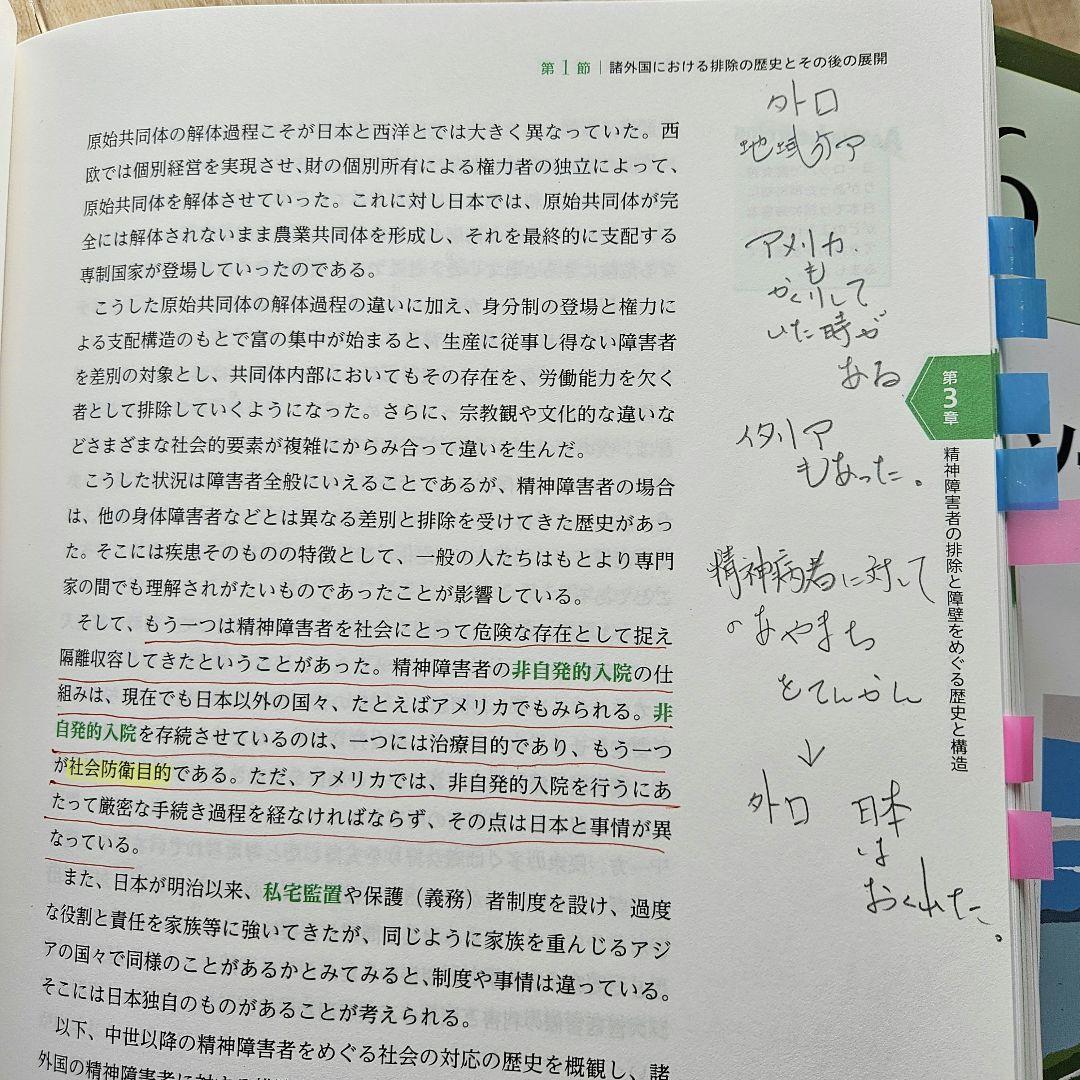 第1節｜諸外国における排除の歴史とその後の展開
原始共同体の解体過程こそが日本と西洋とでは大きく異なっていた。西
欧では個別経営を実現させ、財の個別所有による権力者の独立によって、
原始共同体を解体させていった。これに対し日本では、原始共同体が完
全には解体されないまま農業共同体を形成し、それを最終的に支配する
専制国家が登場していったのである。
こうした原始共同体の解体過程の違いに加え、身分制の登場と権力に
よる支配構造のもとで富の集中が始まると、生産に従事し得ない障害者
を差別の対象とし、共同体内部においてもその存在を、労働能力を欠く
者として排除していくようになった。さらに、宗教観や文化的な違いな
どさまざまな社会的要素が複雑にからみ合って違いを生んだ。
こうした状況は障害者全般にいえることであるが、精神障害者の場合
は、他の身体障害者などとは異なる差別と排除を受けてきた歴史があっ
た。そこには疾患そのものの特徴として、一般の人たちはもとより専門
家の間でも理解されがたいものであったことが影響している。
そして、もう一つは精神障害者を社会にとって危険な存在として捉え
隔離収容してきたということがあった。精神障害者の非自発的入院の仕
組みは、現在でも日本以外の国々、たとえばアメリカでもみられる。非
自発的入院を存続させているのは、一つには治療目的であり、もう一つ
が社会防衛目的である。ただ、アメリカでは、非自発的入院を行うにあ
たって厳密な手続き過程を経なければならず、その点は日本と事情が異
なっている。
また、日本が明治以来、私宅監置や保護（義務）者制度を設け、過度
な役割と責任を家族等に強いてきたが、同じように家族を重んじるアジ
アの国々で同様のことがあるかとみてみると、制度や事情は違っている。
そこには日本独自のものがあることが考えられる。
以下、中世以降の精神障害者をめぐる社会の対応の歴史を概観し、諸
外国の精神障害者に対する
外口
地域ケア
アメリカ
も
かくりして
いた時が
ある
イタリア
もあった。
精神病者に対して
のあやまち
をてんかん
↓
外口 日本
は
おくれた。
第3章
精神障害者の排除と障壁をめぐる歴史と構造